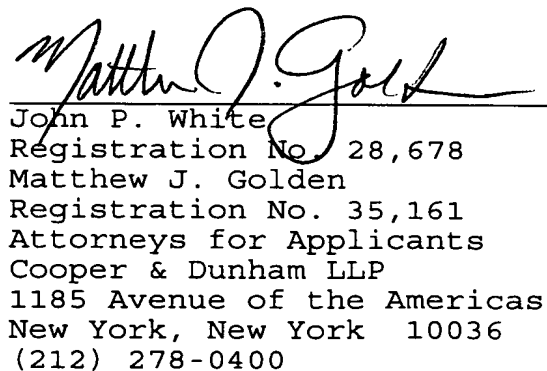 Matthew J. Gold
John P. White
Registration No. 28,678
Matthew J. Golden
Registration No. 35,161
Attorneys for Applicants
Cooper & Dunham LLP
1185 Avenue of the Americas
New York, New York  10036
(212) 278-0400